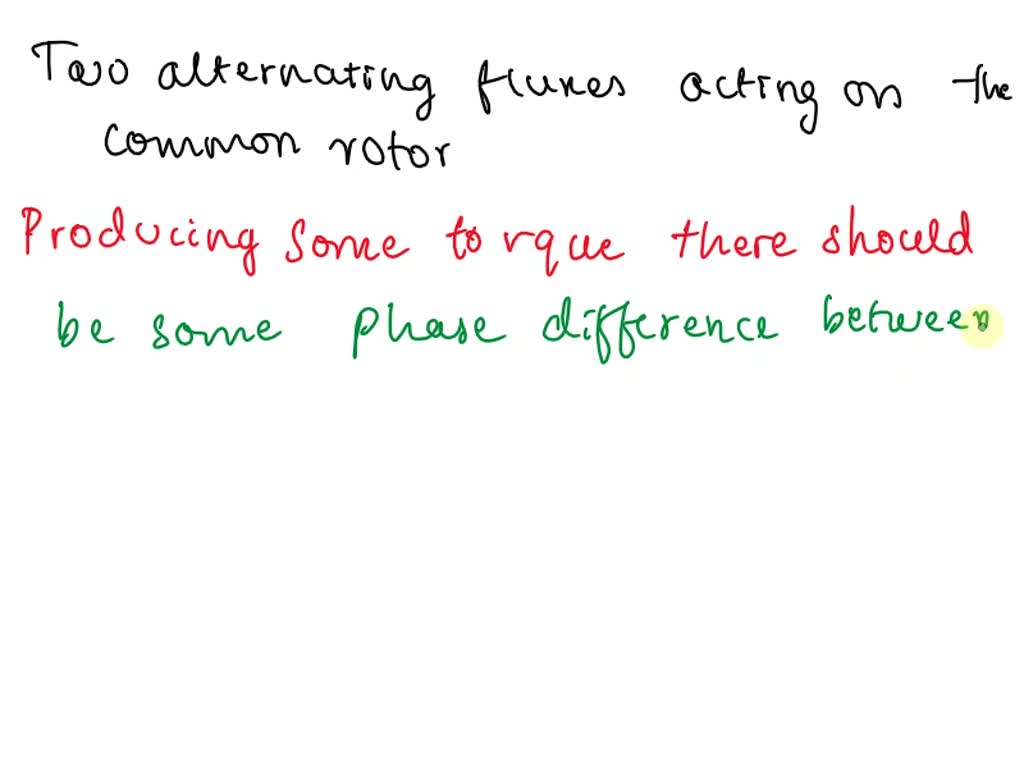 Two alternating fluxes acting on the
common rotor
Producing some torque there should
be some phase difference between